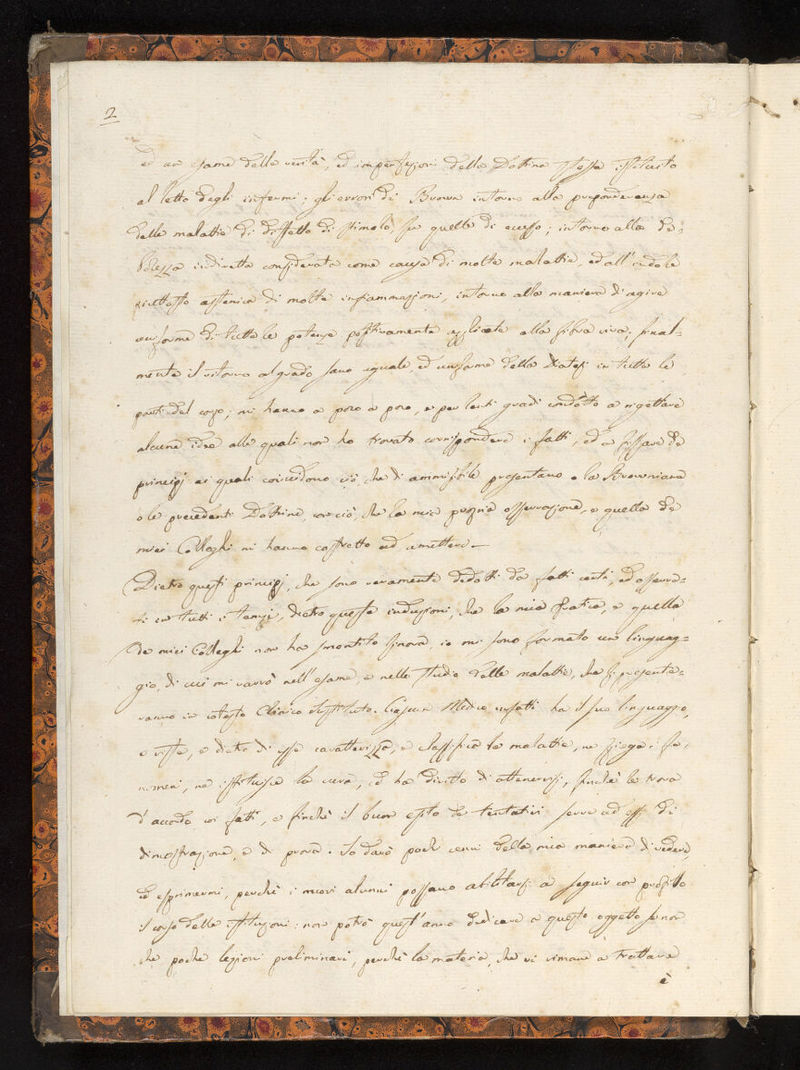 2
ed un esame delle verità, ed imperfezioni della Dottrina stessa istituito
al letto degli infermi; gli errori di Brown intorno alla preponderanza
delle malattie di diffetto di stimolo su quelle di eccesso; intorno alla de-
bolezza indiretta considerata come causa di molte malattie, ed all'indole
piuttosto astenica di molte infiammazioni, intorno alla maniera d'agire
uniforme di tutte le potenze positivamente applicate alla fibra viva, final-
mente il ritorno al grado sano eguale ed uniforme della Diatesi in tutte le
parti del corpo; mi hanno a poco a poco, e per lenti gradi condotto a rigettare
alcune idee alle quali non ho trovato corrispondere i fatti, ed a fissare de
principj ai quali coincidono ciò, che di ammissibile presentano o la Browniana
o le precedenti Dottrine, con ciò, che la mia propria osservazione, e quella de
miei Colleghi mi hanno costretto ad ammettere. —
Dietro questi principj, che sono veramente dedotti da fatti certi, ed osserva-
ti in tutti i tempi, dietro queste induzioni, che la mia pratica, e quella
de miei Colleghi non ha smentito finora, io mi sono formato un linguag-
gio, di cui mi varrò nell'esame, e nello studio delle malattie, che si presente-
ranno in cotesto Clinico Istituto. Ciascun Medico infatti ha il suo linguaggio,
e viste, e dietro di esse caratterizza, e classifica le malattie, ne spiega i fe-
nomeni, ne istituisce la cura, ed ha diritto di attenervisi, finchè le trova
d'accordo coi fatti, e finchè il buon esito de tentativi serve ad esse di
dimostrazione, e di prova. Io darò pochi cenni della mia maniera di vedere,
ed esprimermi, perchè i nuovi alunni possano abilitarsi a seguir con profitto
il corso delle istituzioni: non potrò quest'anno dedicare a questo oggetto se non
che poche lezioni preliminari, perchè la materia, che vi rimane a trattare
è